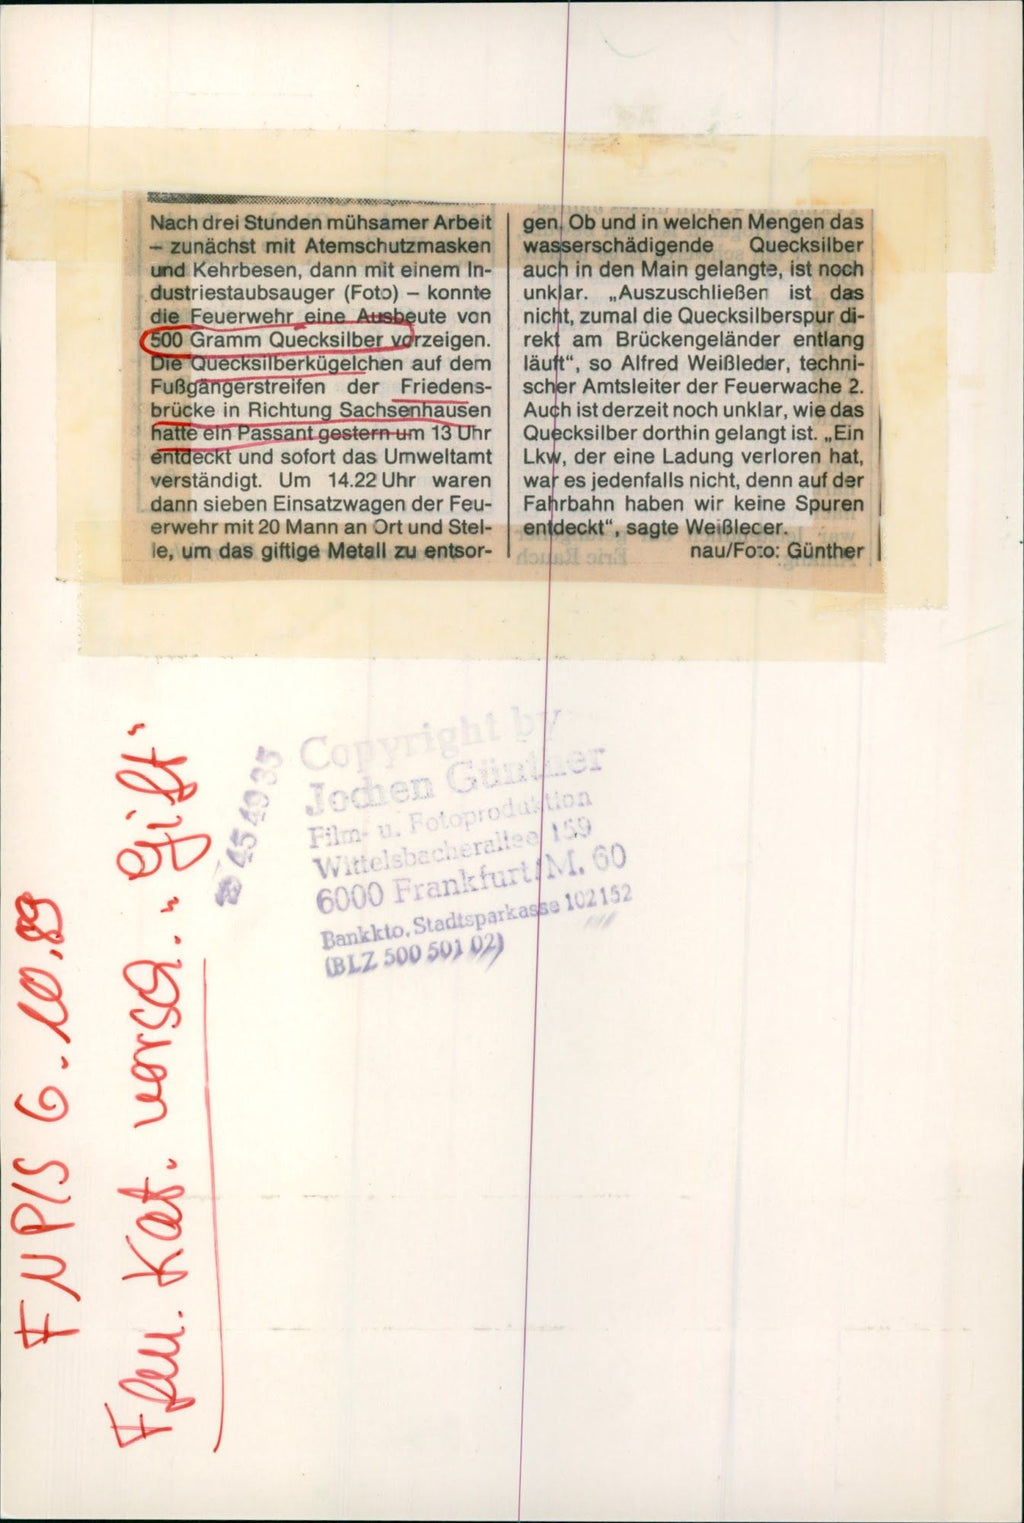 Nach drei Stunden mühsamer Arbeit
– zunächst mit Atemschutzmasken
und Kehrbesen, dann mit einem In-
dustriestaubsauger (Foto) – konnte
die Feuerwehr eine Ausbeute von
500 Gramm Quecksilber vorzeigen.
Die Quecksilberkügelchen auf dem
Fußgängerstreifen der Friedens-
brücke in Richtung Sachsenhausen
hatte ein Passant gestern um 13 Uhr
entdeckt und sofort das Umweltamt
verständigt. Um 14.22 Uhr waren
dann sieben Einsatzwagen der Feu-
erwehr mit 20 Mann an Ort und Stel-
le, um das giftige Metall zu entsor-
gen. Ob und in welchen Mengen das
wasserschädigende Quecksilber
auch in den Main gelangte, ist noch
unklar. „Auszuschließen ist das
nicht, zumal die Quecksilberspur di-
rekt am Brückengeländer entlang
läuft“, so Alfred Weißleder, techni-
scher Amtsleiter der Feuerwache 2.
Auch ist derzeit noch unklar, wie das
Quecksilber dorthin gelangt ist. „Ein
Lkw, der eine Ladung verloren hat,
war es jedenfalls nicht, denn auf der
Fahrbahn haben wir keine Spuren
entdeckt“, sagte Weißleder.
nau/Foto: Günther
Copyright by
Jochen Günther
Film- u. Fotoproduktion
Wittelsbacherallee 159
6000 Frankfurt/M. 60
Bankkto. Stadtsparkasse 102152
(BLZ 500 501 02)
454935
FNP/S 6.10.89
Kat. versch. „Gift“